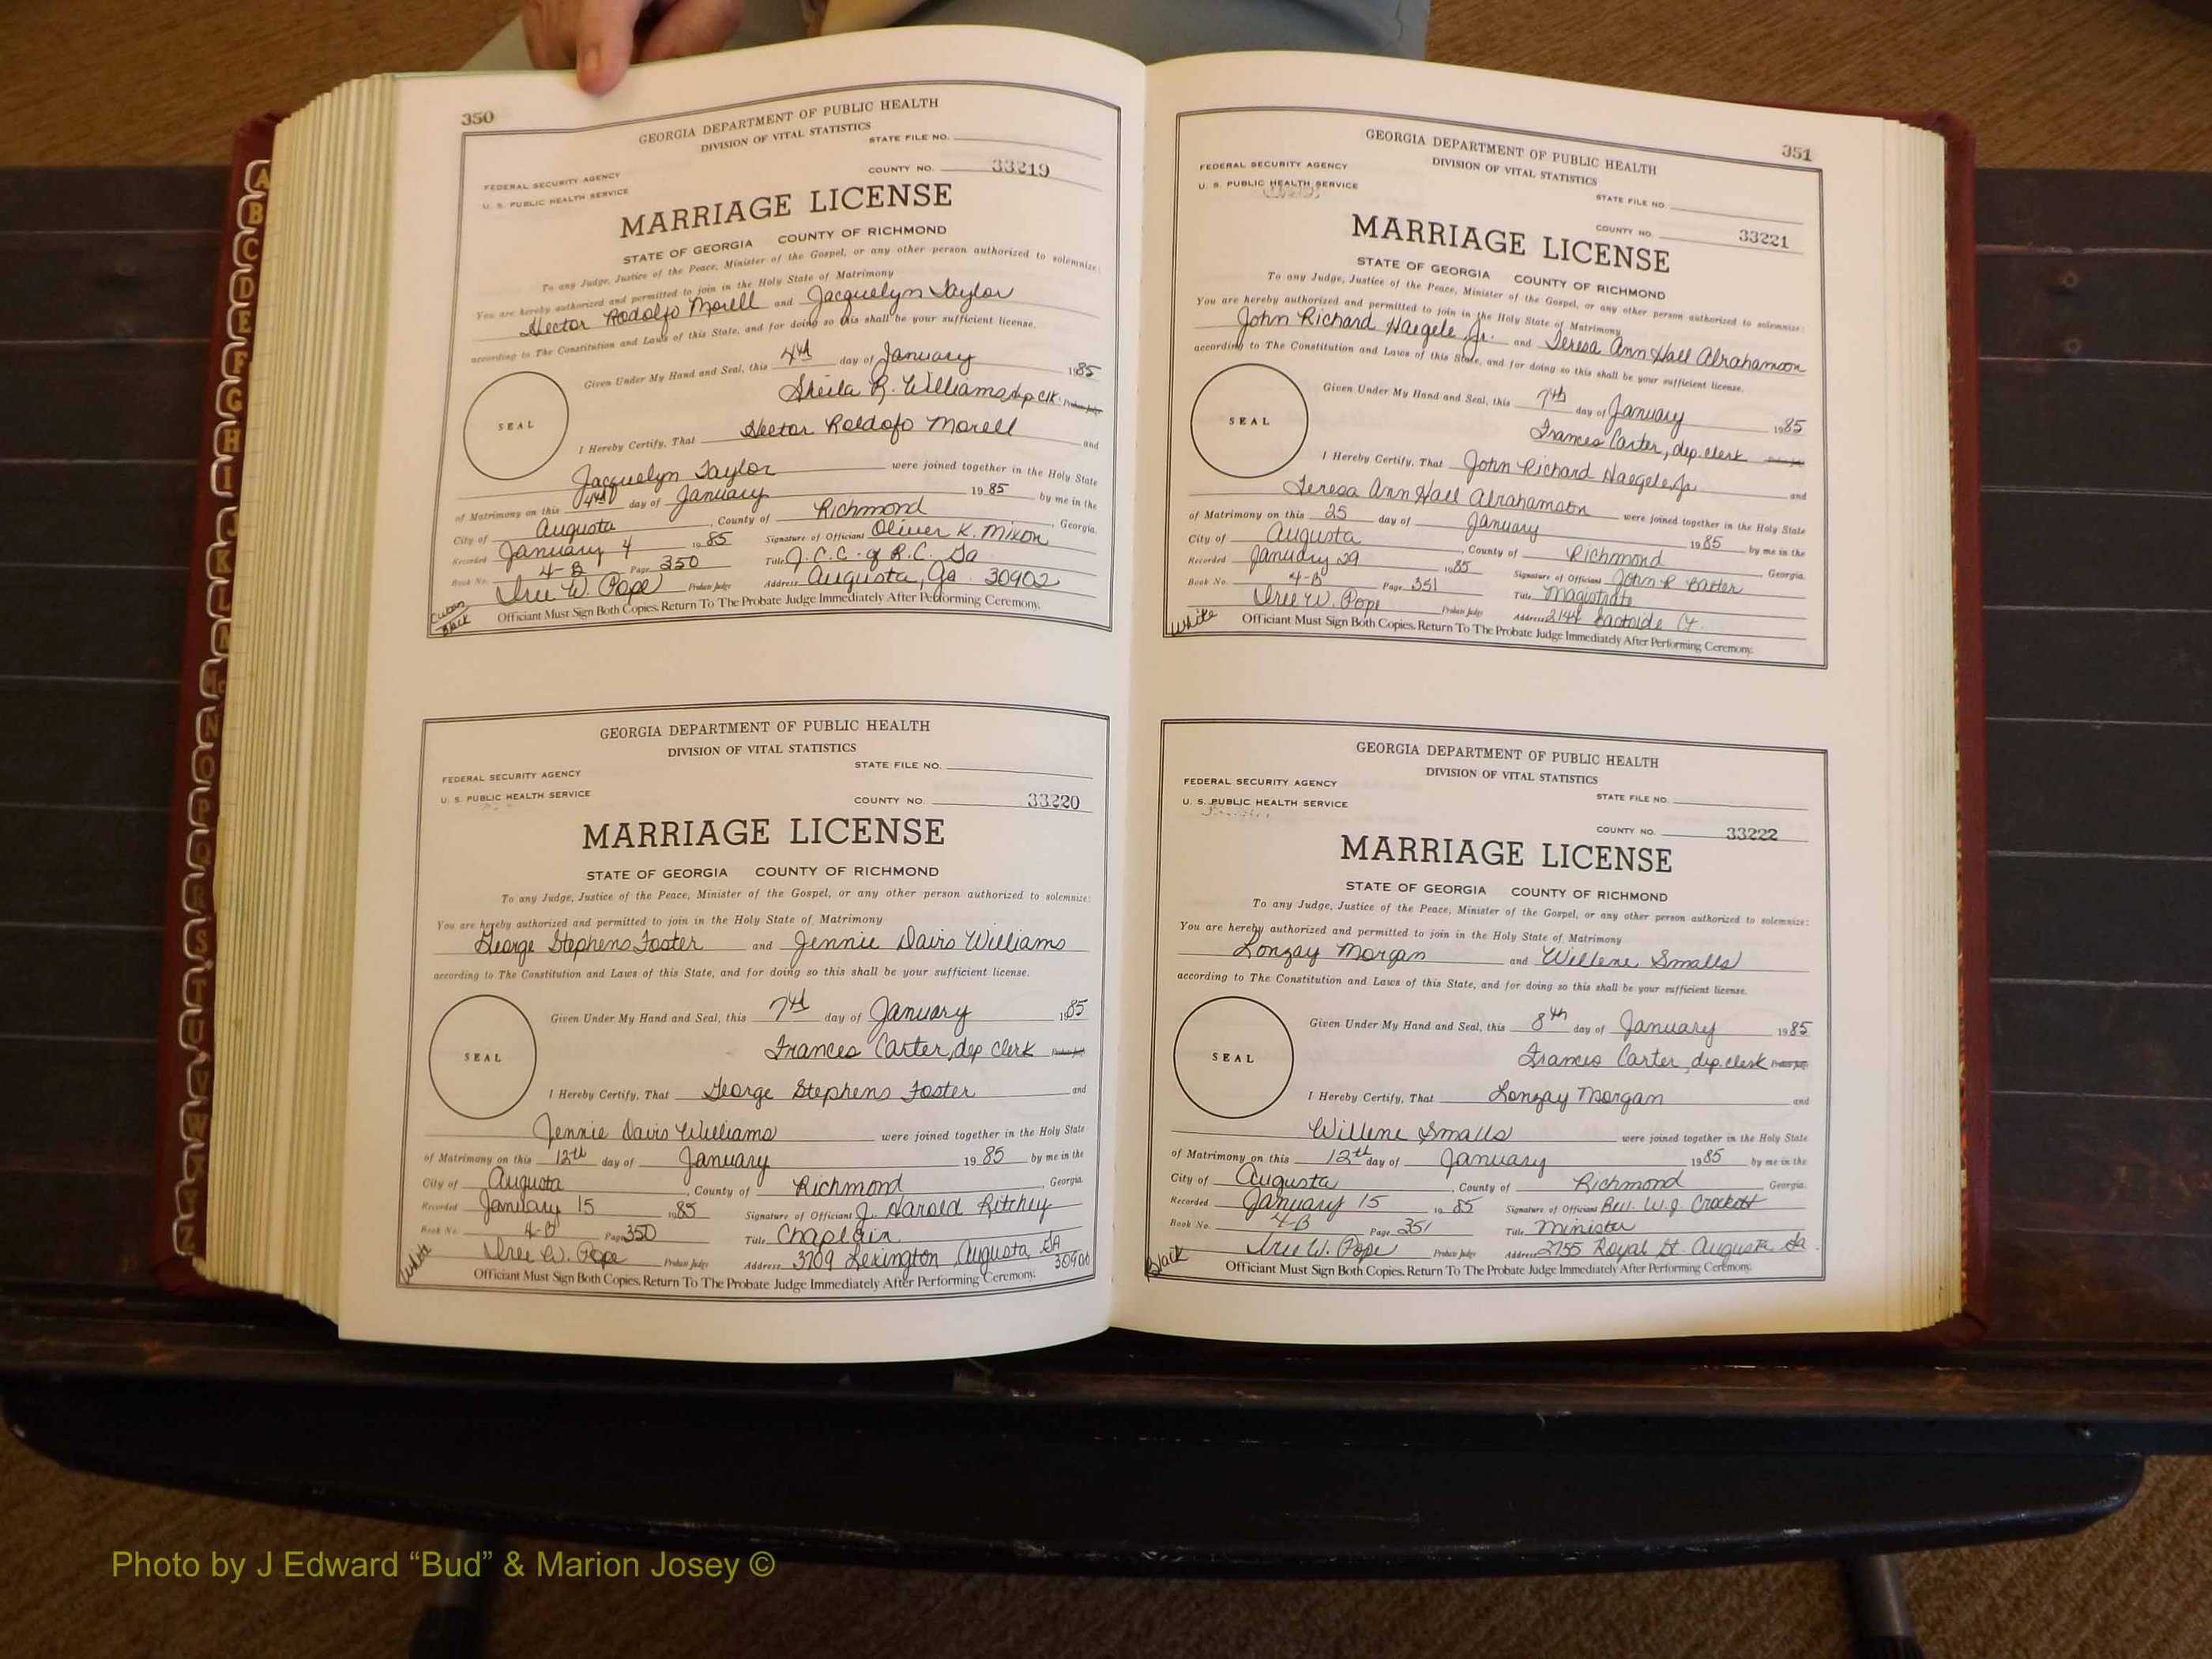 350
GEORGIA DEPARTMENT OF PUBLIC HEALTH
DIVISION OF VITAL STATISTICS
STATE FILE NO.
FEDERAL SECURITY AGENCY
COUNTY NO. 33219
U. S. PUBLIC HEALTH SERVICE
MARRIAGE LICENSE
STATE OF GEORGIA COUNTY OF RICHMOND
To any Judge, Justice of the Peace, Minister of the Gospel, or any other person authorized to solemnize:
You are hereby authorized and permitted to join in the Holy State of Matrimony
Hector Rodolfo Morell and Jacquelyn Taylor
according to The Constitution and Laws of this State, and for doing so this shall be your sufficient license.
Given Under My Hand and Seal, this 4th day of January 1985
Sheila R. Williams, dep clk. Probate Judge
SEAL
I Hereby Certify, That Hector Roldofo Morell and
Jacquelyn Taylor were joined together in the Holy State
of Matrimony on this 4th day of January 1985 by me in the
City of Augusta, County of Richmond, Georgia.
Recorded January 4 1985 Signature of Officiant Oliver K. Mixon
Book No. 4-B Page 350 Title J.C.C. of R.C. Ga
Iree W. Pope Probate Judge Address Augusta, Ga. 30902
Cuban
Black
Officiant Must Sign Both Copies. Return To The Probate Judge Immediately After Performing Ceremony.
GEORGIA DEPARTMENT OF PUBLIC HEALTH
DIVISION OF VITAL STATISTICS
STATE FILE NO.
FEDERAL SECURITY AGENCY
U. S. PUBLIC HEALTH SERVICE
COUNTY NO. 33220
MARRIAGE LICENSE
STATE OF GEORGIA COUNTY OF RICHMOND
To any Judge, Justice of the Peace, Minister of the Gospel, or any other person authorized to solemnize:
You are hereby authorized and permitted to join in the Holy State of Matrimony
George Stephens Foster and Jennie Davis Williams
according to The Constitution and Laws of this State, and for doing so this shall be your sufficient license.
Given Under My Hand and Seal, this 7th day of January 1985
Frances Carter, dep clerk Probate Judge
SEAL
I Hereby Certify, That George Stephens Foster and
Jennie Davis Williams were joined together in the Holy State
of Matrimony on this 12th day of January 1985 by me in the
City of Augusta, County of Richmond, Georgia.
Recorded January 15 1985 Signature of Officiant J. Harold Ritchey
Book No. 4-B Page 350 Title Chaplain
Iree W. Pope Probate Judge Address 3709 Lexington, Augusta GA 30906
White
Officiant Must Sign Both Copies. Return To The Probate Judge Immediately After Performing Ceremony.
351
GEORGIA DEPARTMENT OF PUBLIC HEALTH
DIVISION OF VITAL STATISTICS
FEDERAL SECURITY AGENCY
U. S. PUBLIC HEALTH SERVICE
STATE FILE NO.
COUNTY NO. 33221
MARRIAGE LICENSE
STATE OF GEORGIA COUNTY OF RICHMOND
To any Judge, Justice of the Peace, Minister of the Gospel, or any other person authorized to solemnize:
You are hereby authorized and permitted to join in the Holy State of Matrimony
John Richard Haegele, Jr. and Teresa Ann Hall Abrahamson
according to The Constitution and Laws of this State, and for doing so this shall be your sufficient license.
Given Under My Hand and Seal, this 7th day of January 1985
Frances Carter, dep. clerk Probate Judge
SEAL
I Hereby Certify, That John Richard Haegele Jr and
Teresa Ann Hall Abrahamson were joined together in the Holy State
of Matrimony on this 25 day of January 1985 by me in the
City of Augusta, County of Richmond, Georgia.
Recorded January 29 1985 Signature of Officiant John R Baxter
Book No. 4-B Page 351 Title Magistrate
Iree W. Pope Probate Judge Address 2144 Eastside Ct.
White
Officiant Must Sign Both Copies. Return To The Probate Judge Immediately After Performing Ceremony.
GEORGIA DEPARTMENT OF PUBLIC HEALTH
DIVISION OF VITAL STATISTICS
FEDERAL SECURITY AGENCY
STATE FILE NO.
U. S. PUBLIC HEALTH SERVICE
COUNTY NO. 33222
MARRIAGE LICENSE
STATE OF GEORGIA COUNTY OF RICHMOND
To any Judge, Justice of the Peace, Minister of the Gospel, or any other person authorized to solemnize:
You are hereby authorized and permitted to join in the Holy State of Matrimony
Lonzay Morgan and Willene Smalls
according to The Constitution and Laws of this State, and for doing so this shall be your sufficient license.
Given Under My Hand and Seal, this 8th day of January 1985
Frances Carter, dep. clerk Probate Judge
SEAL
I Hereby Certify, That Lonzay Morgan and
Willene Smalls were joined together in the Holy State
of Matrimony on this 12th day of January 1985 by me in the
City of Augusta, County of Richmond, Georgia.
Recorded January 15 1985 Signature of Officiant Rev. W.J. Crockett
Book No. 4-B Page 351 Title Minister
Iree W. Pope Probate Judge Address 2755 Royal St. Augusta, Ga.
Black
Officiant Must Sign Both Copies. Return To The Probate Judge Immediately After Performing Ceremony.
Photo by J Edward “Bud” & Marion Josey ©